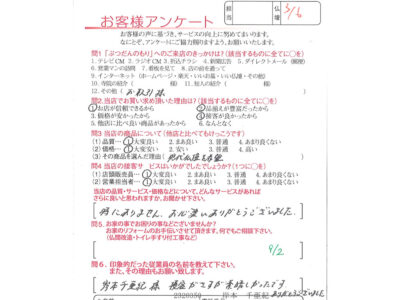 担当
仏壇
3/6
お客様アンケート
お客様の声に基づき、サービスの向上に努めてまいります。
なにとぞ、アンケートにご協力賜りますよう、お願いいたします。
問1「ぶつだんのもり」へのご来店のきっかけは？(該当するものに全てに○を)
1. テレビCM 2. ラジオCM 3. 折込チラシ 4. 新聞広告 5. ダイレクトメール(郵便)
6. 営業マンの訪問 7. 看板を見て 8. 店の前を通って
9. インターネット（ホームページ・楽天・いいお墓・いい仏壇・その他）
10. 寺院の紹介（ ） 11. 知人の紹介（ 様）
12. その他（
問2. 当店でお買い求め頂いた理由は？(該当するものに全てに○を)
① お店が信頼できるから ② 品揃えが豊富だったから
3. 価格が安かったから ④ 接客が良かったから
5. 他店に比べ良い商品があったから 6. なんとなく
問3 当店の商品について(他店と比べてもけっこうです)
(1) 品質… ① 大変良い 2. まあ良い 3. 普通 4. あまり良くない
(2) 価格… ① 大変安い 2. 安い 3. 普通 4. 高い
(3) その商品を選んだ理由（
問4 当店の接客サービスはいかがでしたでしょうか？(1つに○を)
(1) 店舗販売員… ① 大変良い 2. まあ良い 3. 普通 4. あまり良くない
(2) 営業担当者… ① 大変良い 2. まあ良い 3. 普通 4. あまり良くない
当店の品質・サービス・価格などについて、どんなサービスがあれば
さらに良いと思われますか、お聞かせ下さい。
特にありません。お世話いありがとうございました。
問5
お家の事でお困りの事などございませんか？
お家のリフォームのお手伝いさせて頂きます。何でもご相談下さい。
(仏間改造・トイレ手すり付工事など)
9/2
問6、印象的だった従業員の名前を教えて下さい。
また、その理由もお願い致します。
岸本千亜紀様
ありがとうございました
岸本 千亜紀